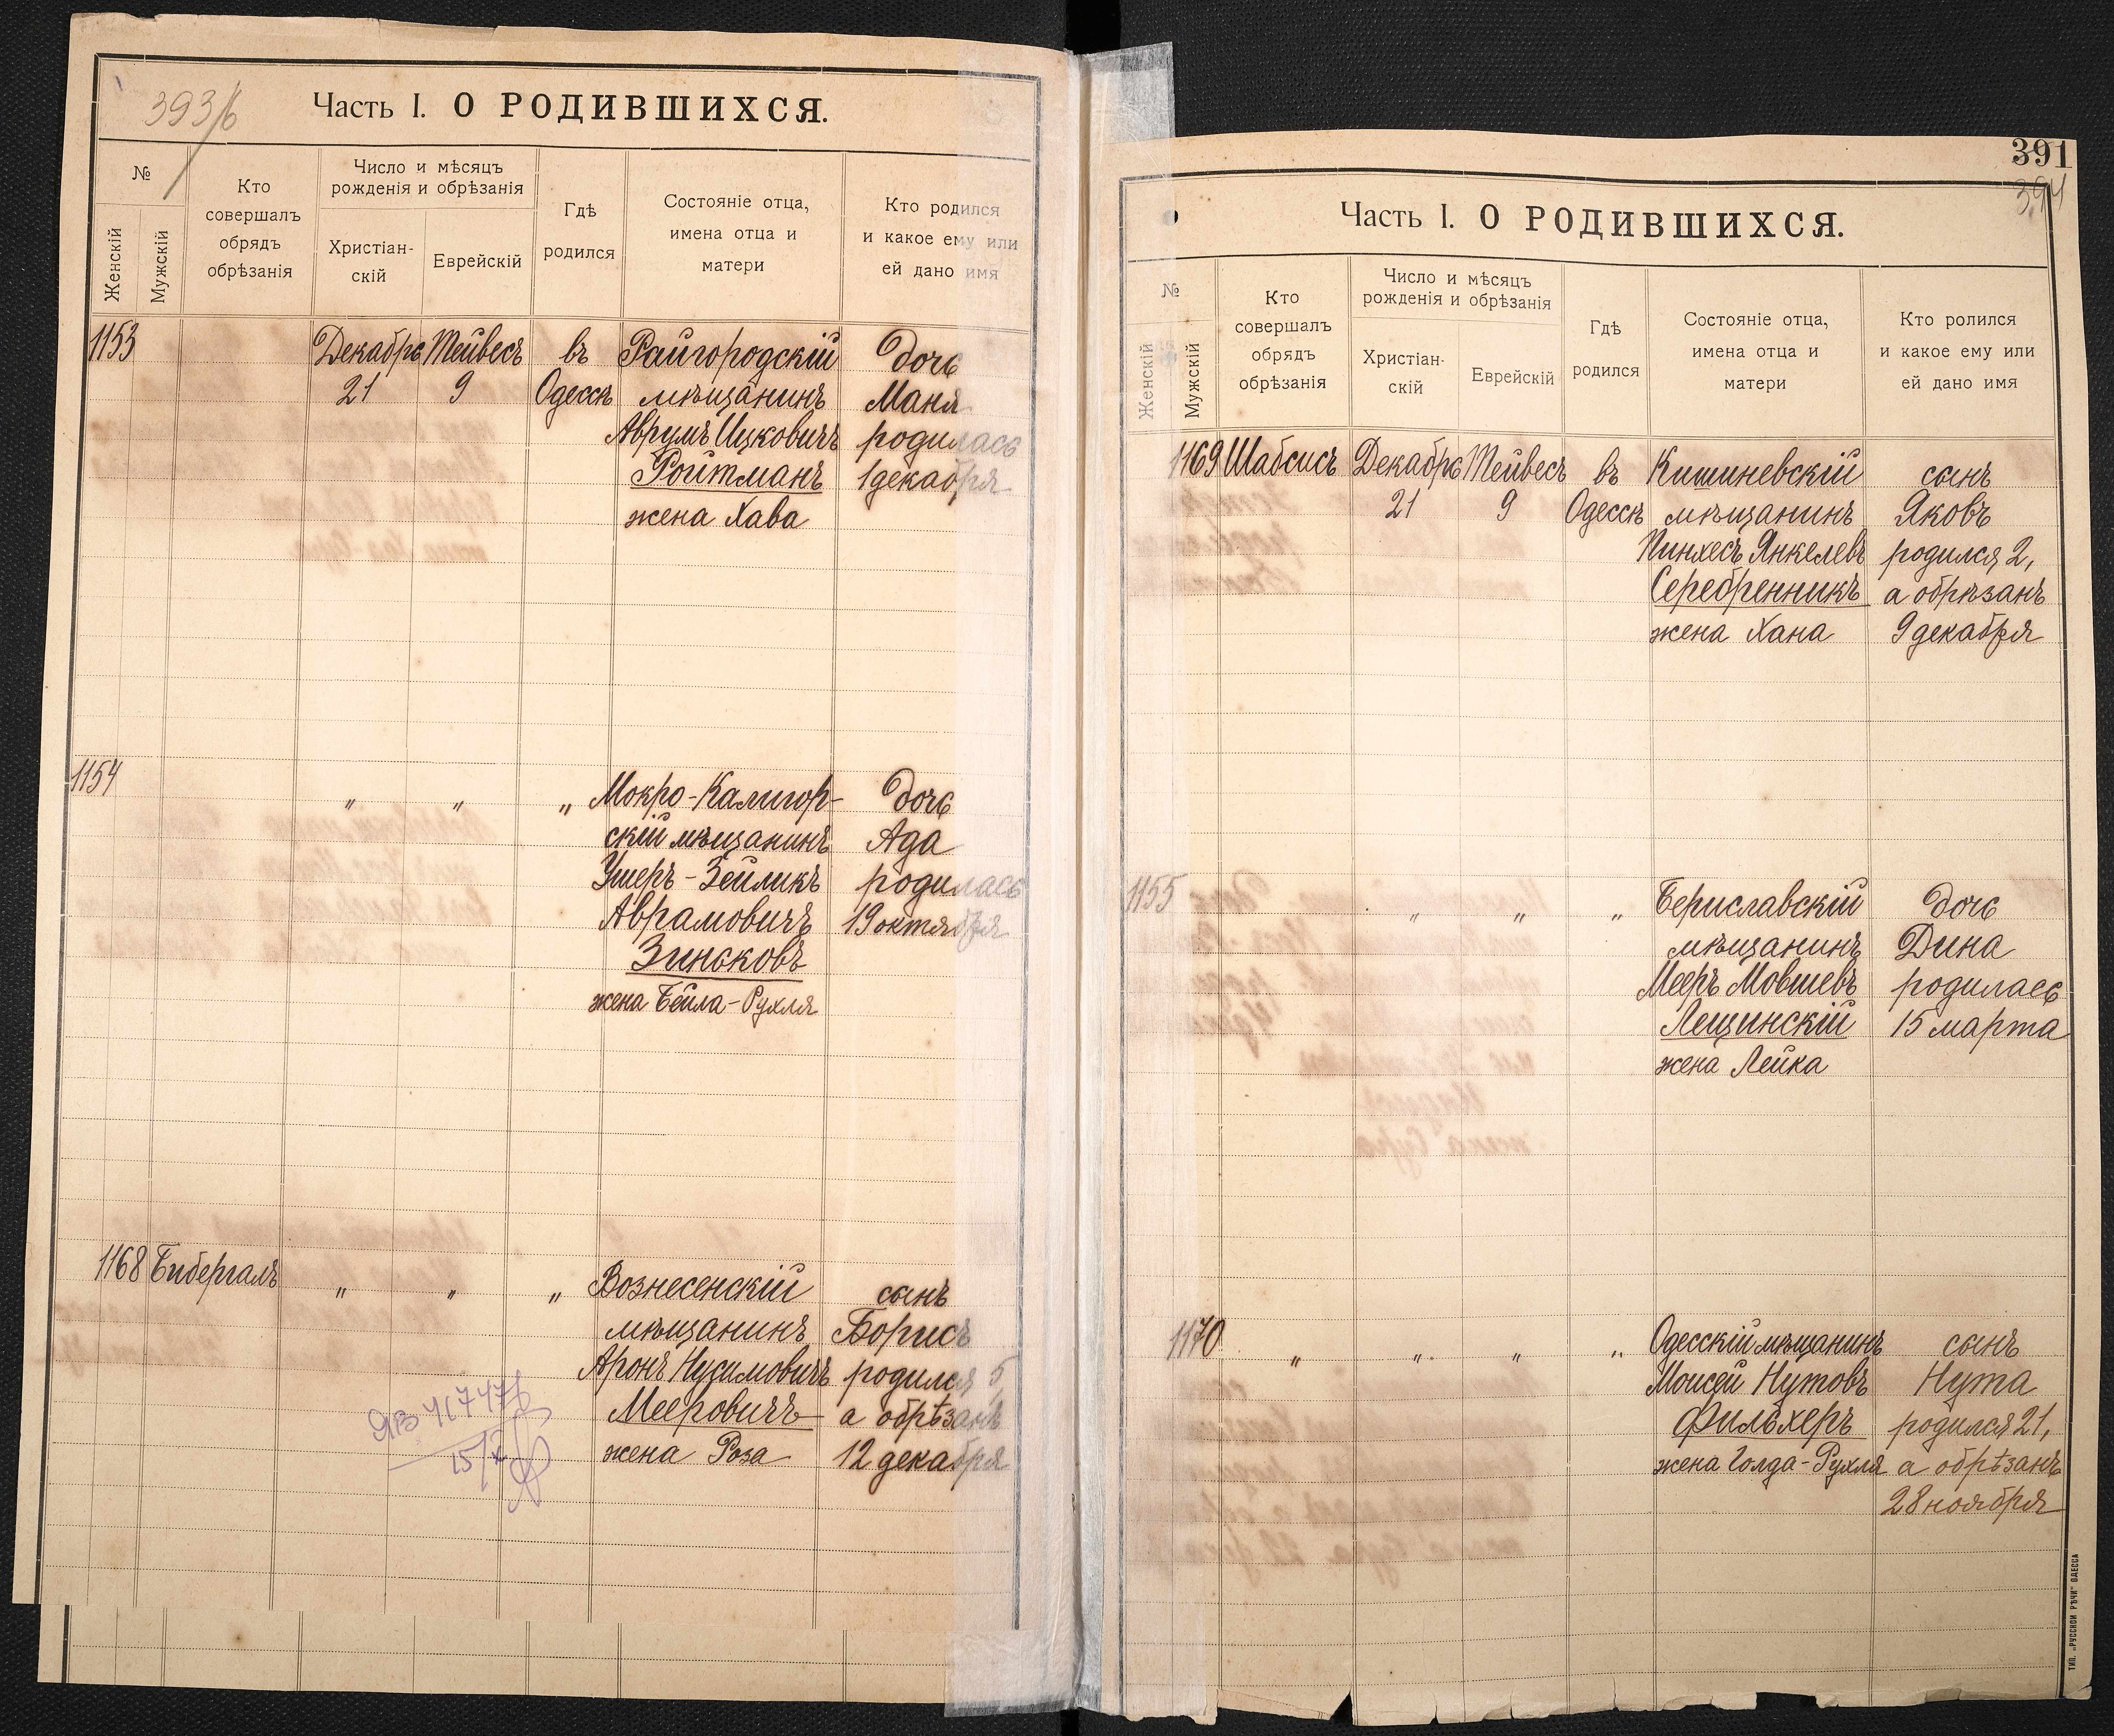 393/б
Часть I. О РОДИВШИХСЯ.
№
Женскій
Мужскій
Кто
совершалъ
обрядъ
обрѣзанія
Число и мѣсяцъ
рожденія и обрѣзанія
Христіан-
скій
Еврейскій
Гдѣ
родился
Состояніе отца,
имена отца и
матери
Кто родился
и какое ему или
ей дано имя
1153 Декабрь Тейвесъ въ Райгородскій дочь
21 9 Одессѣ мѣщанинъ Маня
Аврумъ Ицковичъ родилась
Ройтманъ 1 декабря
жена Хава
1154 " " " Мокро-Калигор- дочь
скій мѣщанинъ Ада
Ушеръ-Зейликъ родилась
Аврамовичъ 19 октября
Зиньковъ
жена Бейла-Рухля
1168 Бибергалъ " " " Вознесенскій сынъ
мѣщанинъ Борисъ
Аронъ Нусимовичъ родился 5
Мееровичъ а обрѣзанъ
жена Роза 12 декабря
391
394
Часть I. О РОДИВШИХСЯ.
№
Женскій
Мужскій
Кто
совершалъ
обрядъ
обрѣзанія
Число и мѣсяцъ
рожденія и обрѣзанія
Христіан-
скій
Еврейскій
Гдѣ
родился
Состояніе отца,
имена отца и
матери
Кто ролился
и какое ему или
ей дано имя
1169 Шабсисъ Декабрь Тейвесъ въ Кишиневскій сынъ
21 9 Одессѣ мѣщанинъ Яковъ
Пинхесъ Янкелевъ родился 2,
Серебренникъ а обрѣзанъ
жена Хана 9 декабря
1155 " " " Бериславскій дочь
мѣщанинъ Дина
Мееръ Мовшевъ родилась
Лещинскій 15 марта
жена Лейка
1170 " " " " Одесскій мѣщанинъ сынъ
Моисей Нутовъ Нута
Фильхеръ родился 21,
жена Голда-Рухля а обрѣзанъ
28 ноября
ТИП. „РУССКОЙ РѢЧИ" ОДЕССА